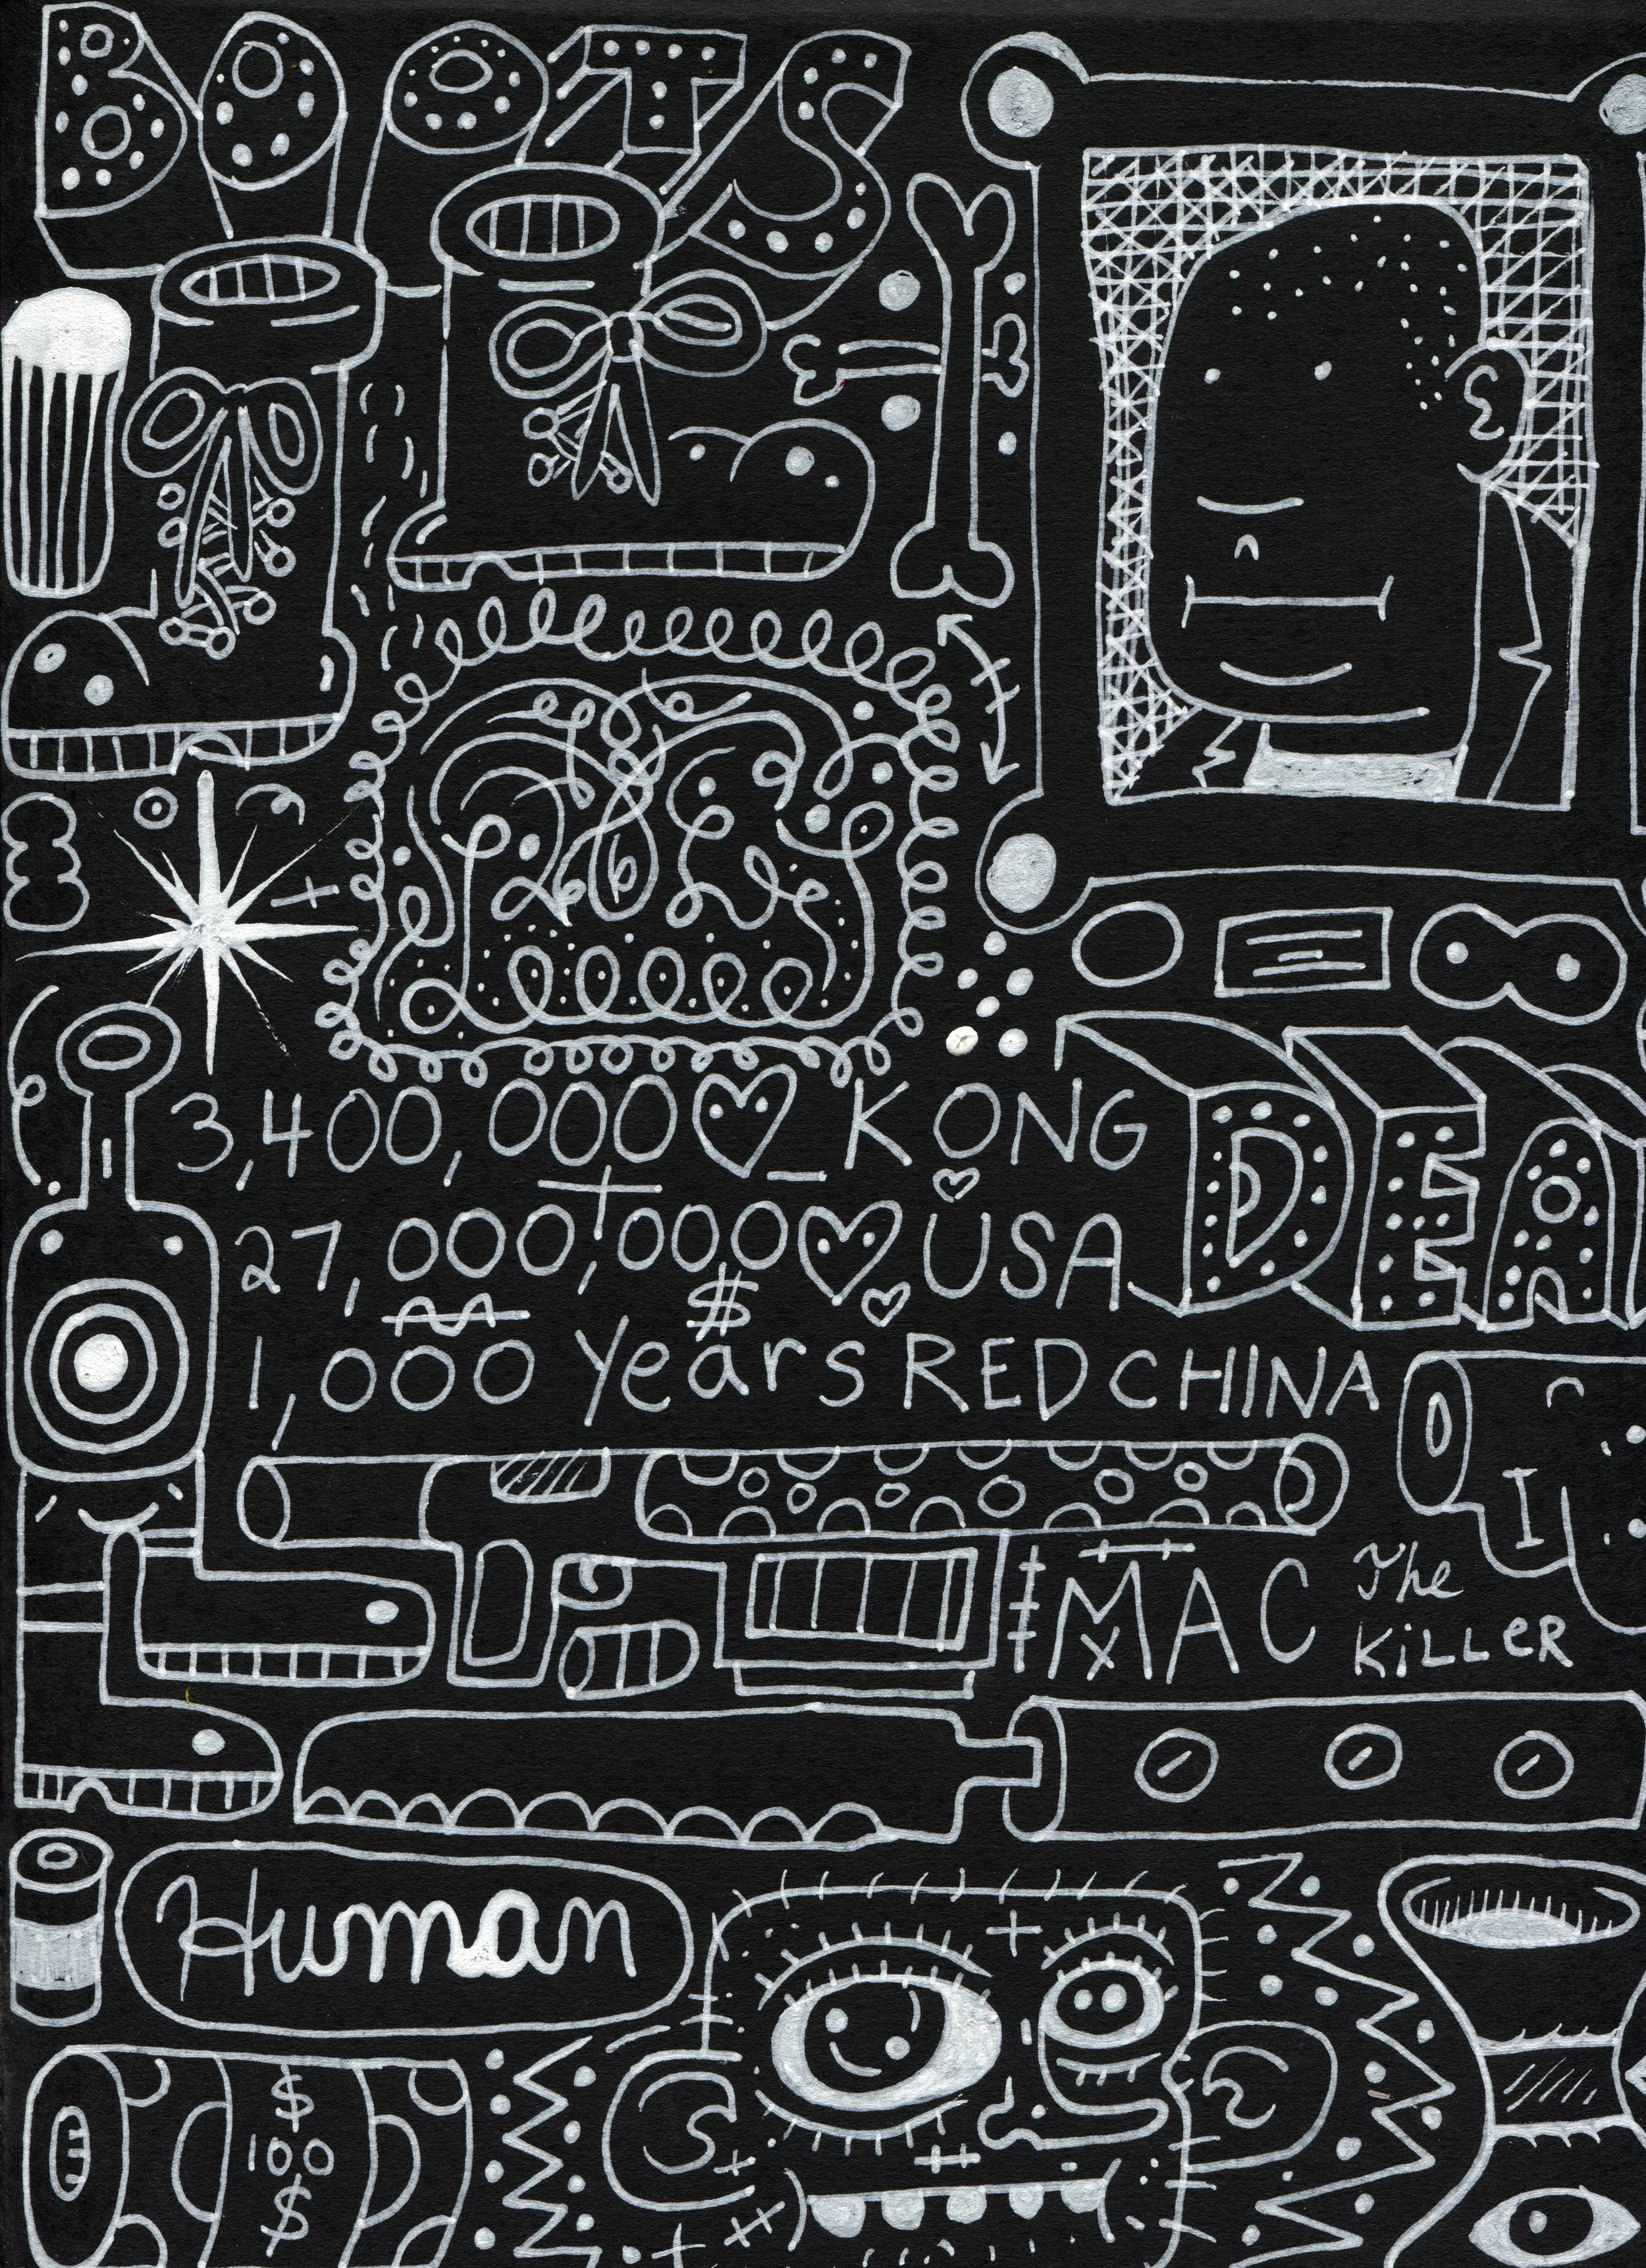 BOOTS
3,400,000 KONG
27,000,000 USA
$
1,000 Years RED CHINA
DEA
I
MAC The KiLLeR
Human
$
100
$